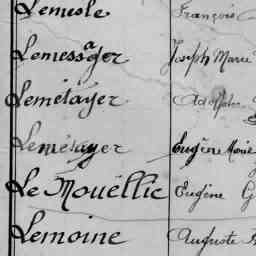 Lemesle François
Lemessager Joseph Marie
Lemétayer Adolphe
Lemétayer Eugène Marie
Le Mouëllic Eugène G
Lemoine Auguste